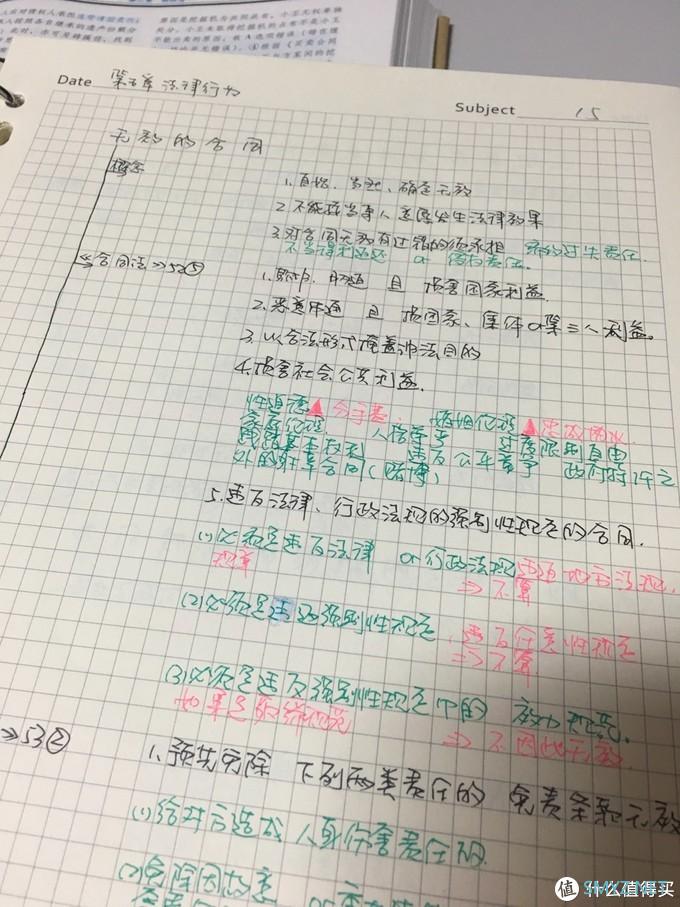 Date 第五章 法律行为
Subject 15
无效的合同
概念
1. 自始、当然、确定无效
2. 不能按当事人意愿发生法律效果
3. 对合同无效有过错的须承担 缔约过失责任.
不当得利返还 or 侵权责任.
《合同法》52⑤
1. 欺诈、胁迫 且 损害国家利益.
2. 恶意串通 且 损国家、集体or第三人利益。
3. 以合法形式掩盖非法目的
4. 损害社会公共利益.
性道德 ▲分手费. 婚姻伦理
家庭伦理 人格尊严 过度限制自由
基本权利 违反公平竞争 政府特许之
外的射幸合同(赌博)
5. 违反法律、行政法规的强制性规定的合同.
(1) 必须是违反法律 or 行政法规 地方法规,
规章 ⇒ 不算
(2) 必须是违反强制性规定, 违反任意性规定
⇒ 不算.
(3) 必须是违反强制性规定中的 效力规范.
如果是 ⇒ 不因此无效.
⇒ 53②
1. 预先免除 下列两类责任的 免责条款无效
(1) 给对方造成 人身伤害责任的.
(2) 免除因故意
值 什么值得买